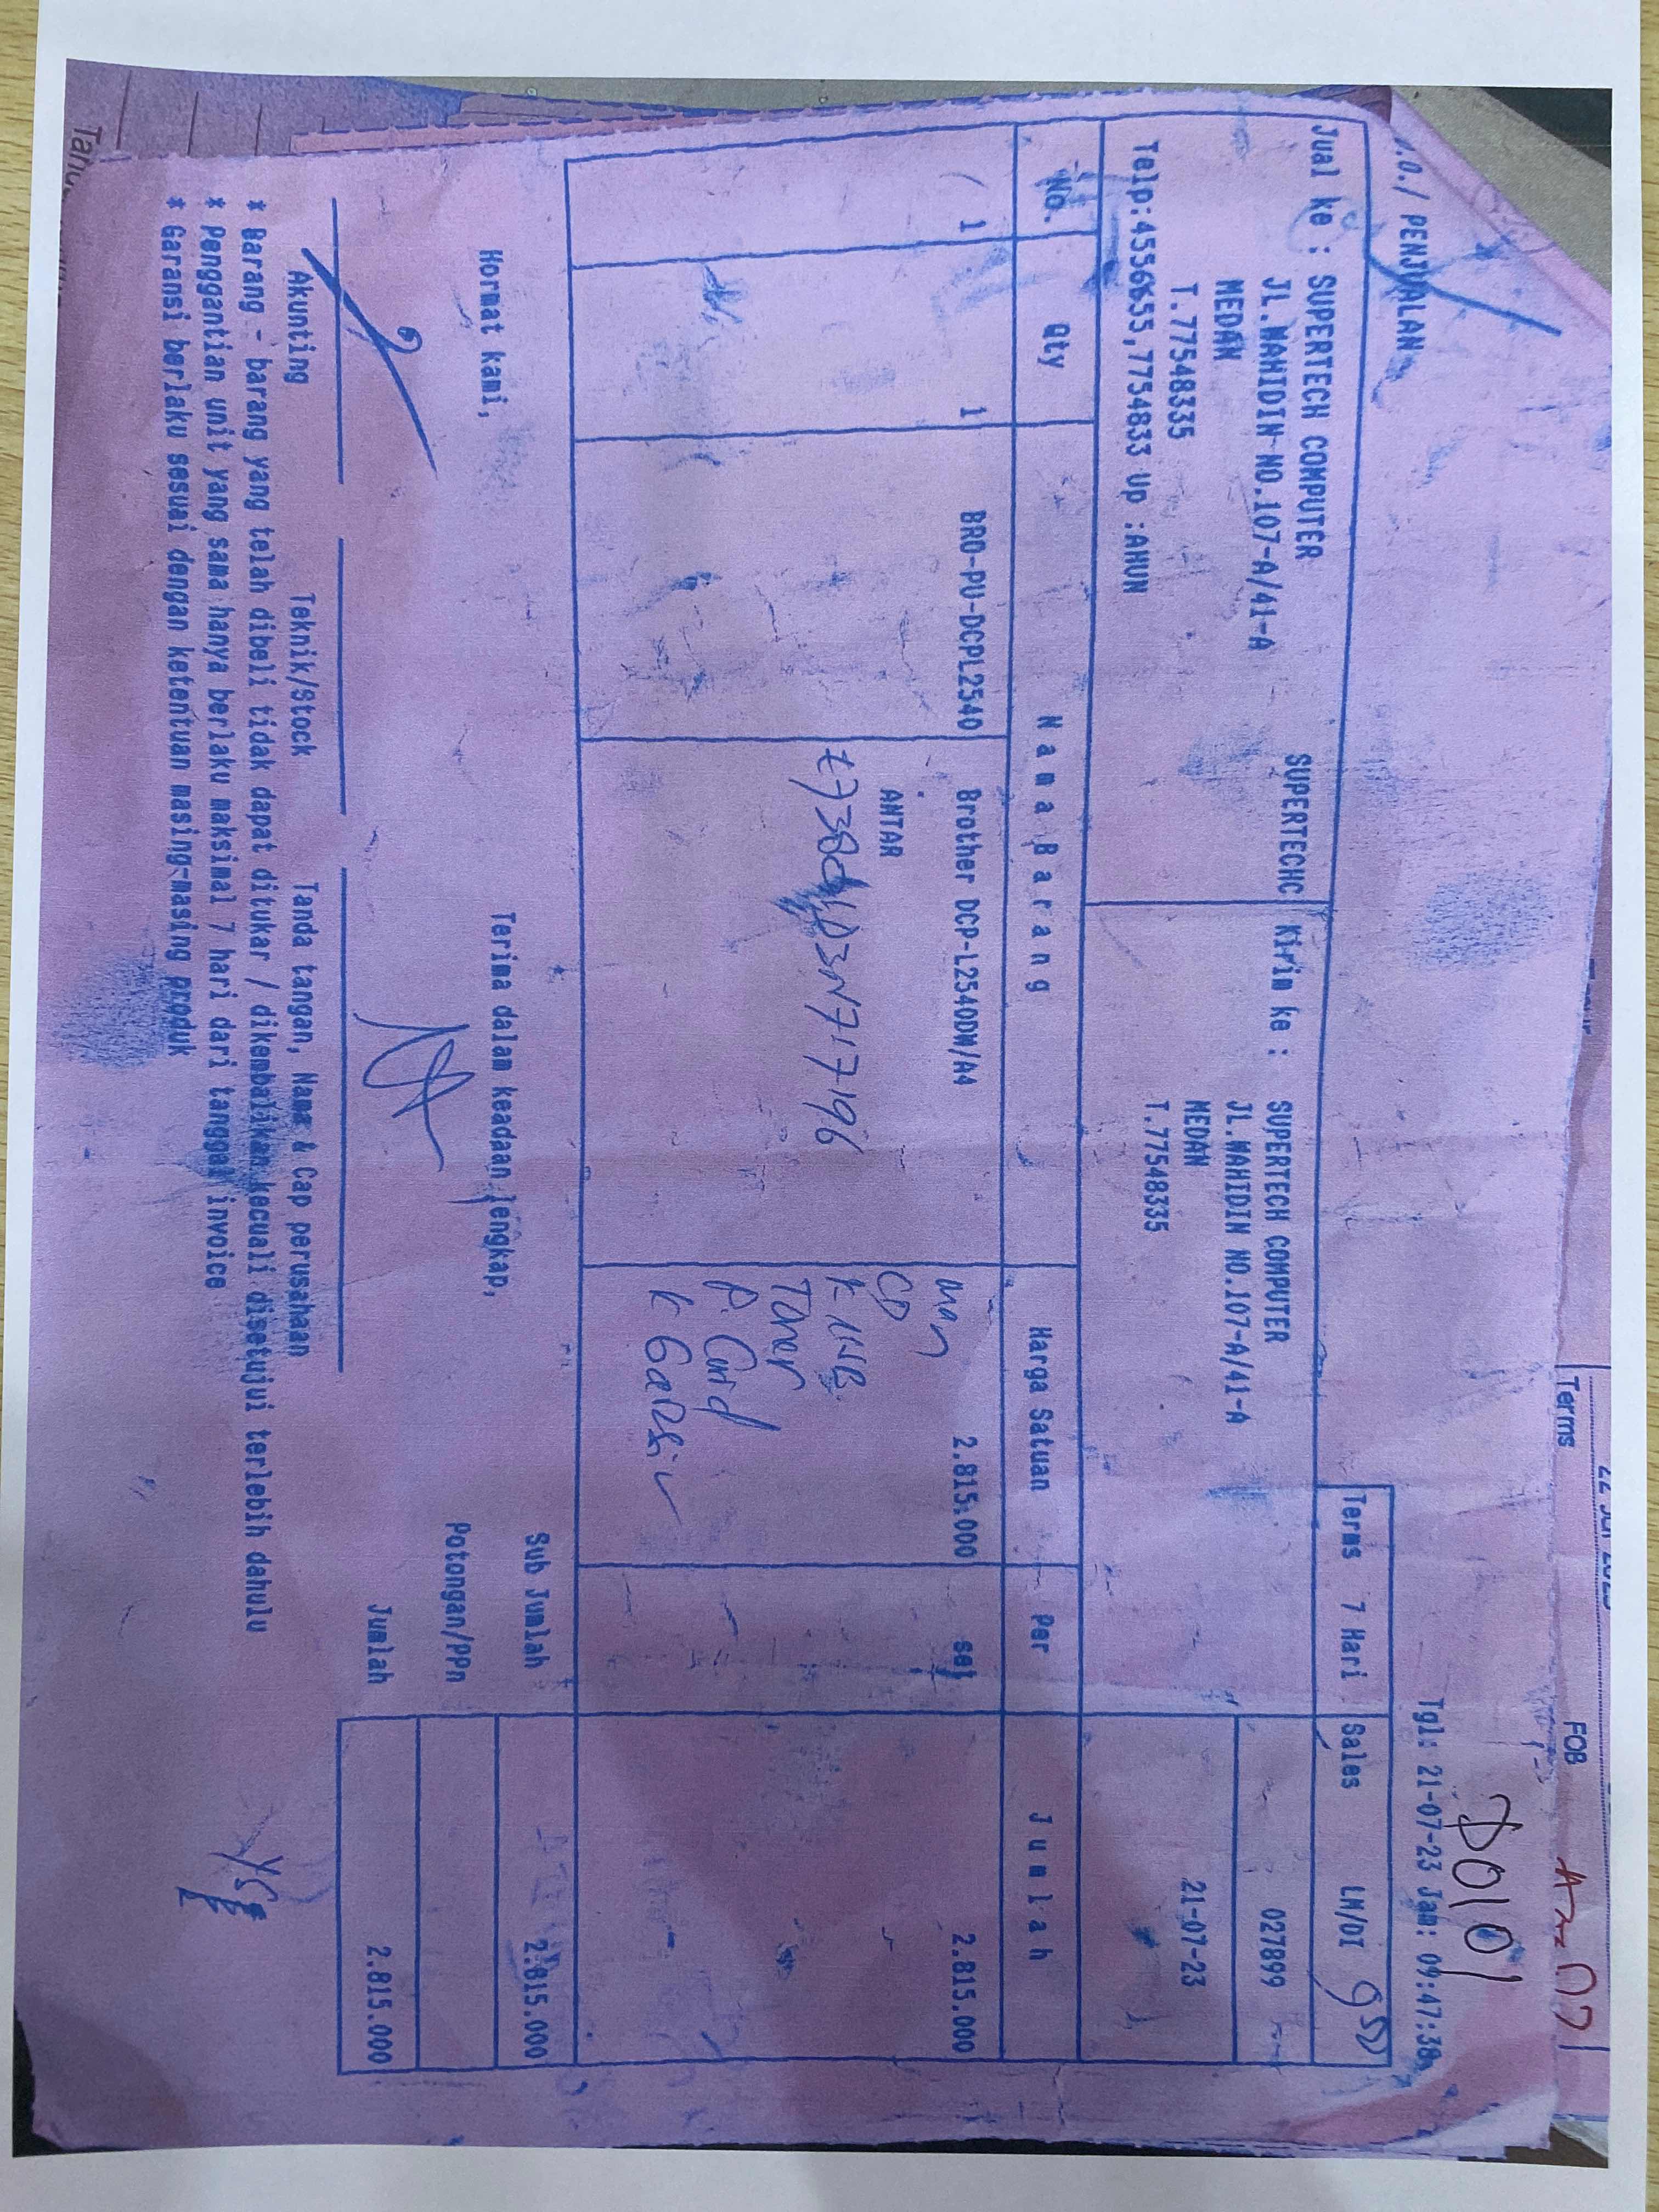 Terms FOB
D0101
PENJUALAN Tgl: 21-07-23 Jam: 09:47:38
Terms 7 Hari Sales LM/DI
Jual ke : SUPERTECH COMPUTER SUPERTECHC Kirim ke : SUPERTECH COMPUTER 027899
JL.WAHIDIN NO.107-A/41-A JL.WAHIDIN NO.107-A/41-A
MEDAN MEDAN 21-07-23
T.77548335 T.77548335
Up :AHUN
No. Qty Nama Barang Harga Satuan Per Jumlah
1 1 BRO-PU-DCPL2540 Brother DCP-L2540DW/A4 2.815.000 set 2.815.000
ANTAR
CD
Toner
Hormat kami, Terima dalam keadaan lengkap, Sub Jumlah 2.815.000
Potongan/PPn
Jumlah 2.815.000
Akunting Teknik/Stock Tanda tangan, Nama & Cap perusahaan
* Barang - barang yang telah dibeli tidak dapat ditukar / dikembalikan kecuali disetujui terlebih dahulu
* Penggantian unit yang sama hanya berlaku maksimal 7 hari dari tanggal invoice
* Garansi berlaku sesuai dengan ketentuan masing-masing produk